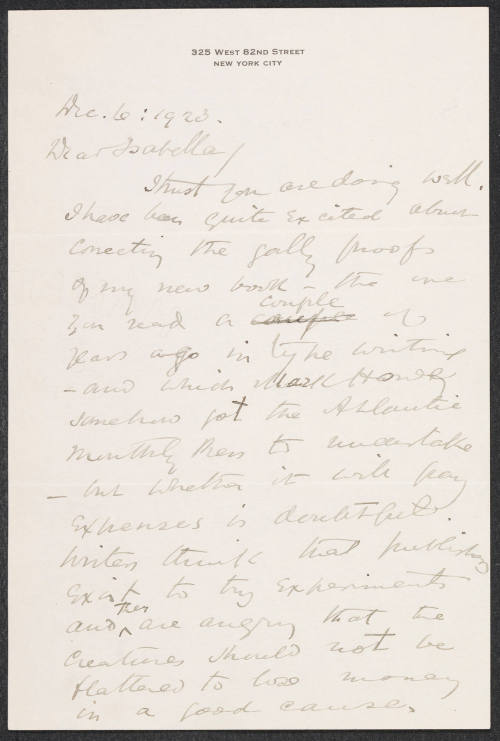 325 West 82nd Street
New York City
Dec. 6: 1923.
Dear Isabella/
I trust you are doing well.
I have been quite excited about
correcting the gally proofs
of my new book – the one
you read a couple couple of
years ago in type writing
– and which Mark Howe
somehow got the Atlantic
Monthly Press to undertake
– but whether it will pay
expenses is doubtful.
Writers think that publishers
exist to try experiments
and they are angry that the
creatures should not be
flattered to lose money
in a good cause.